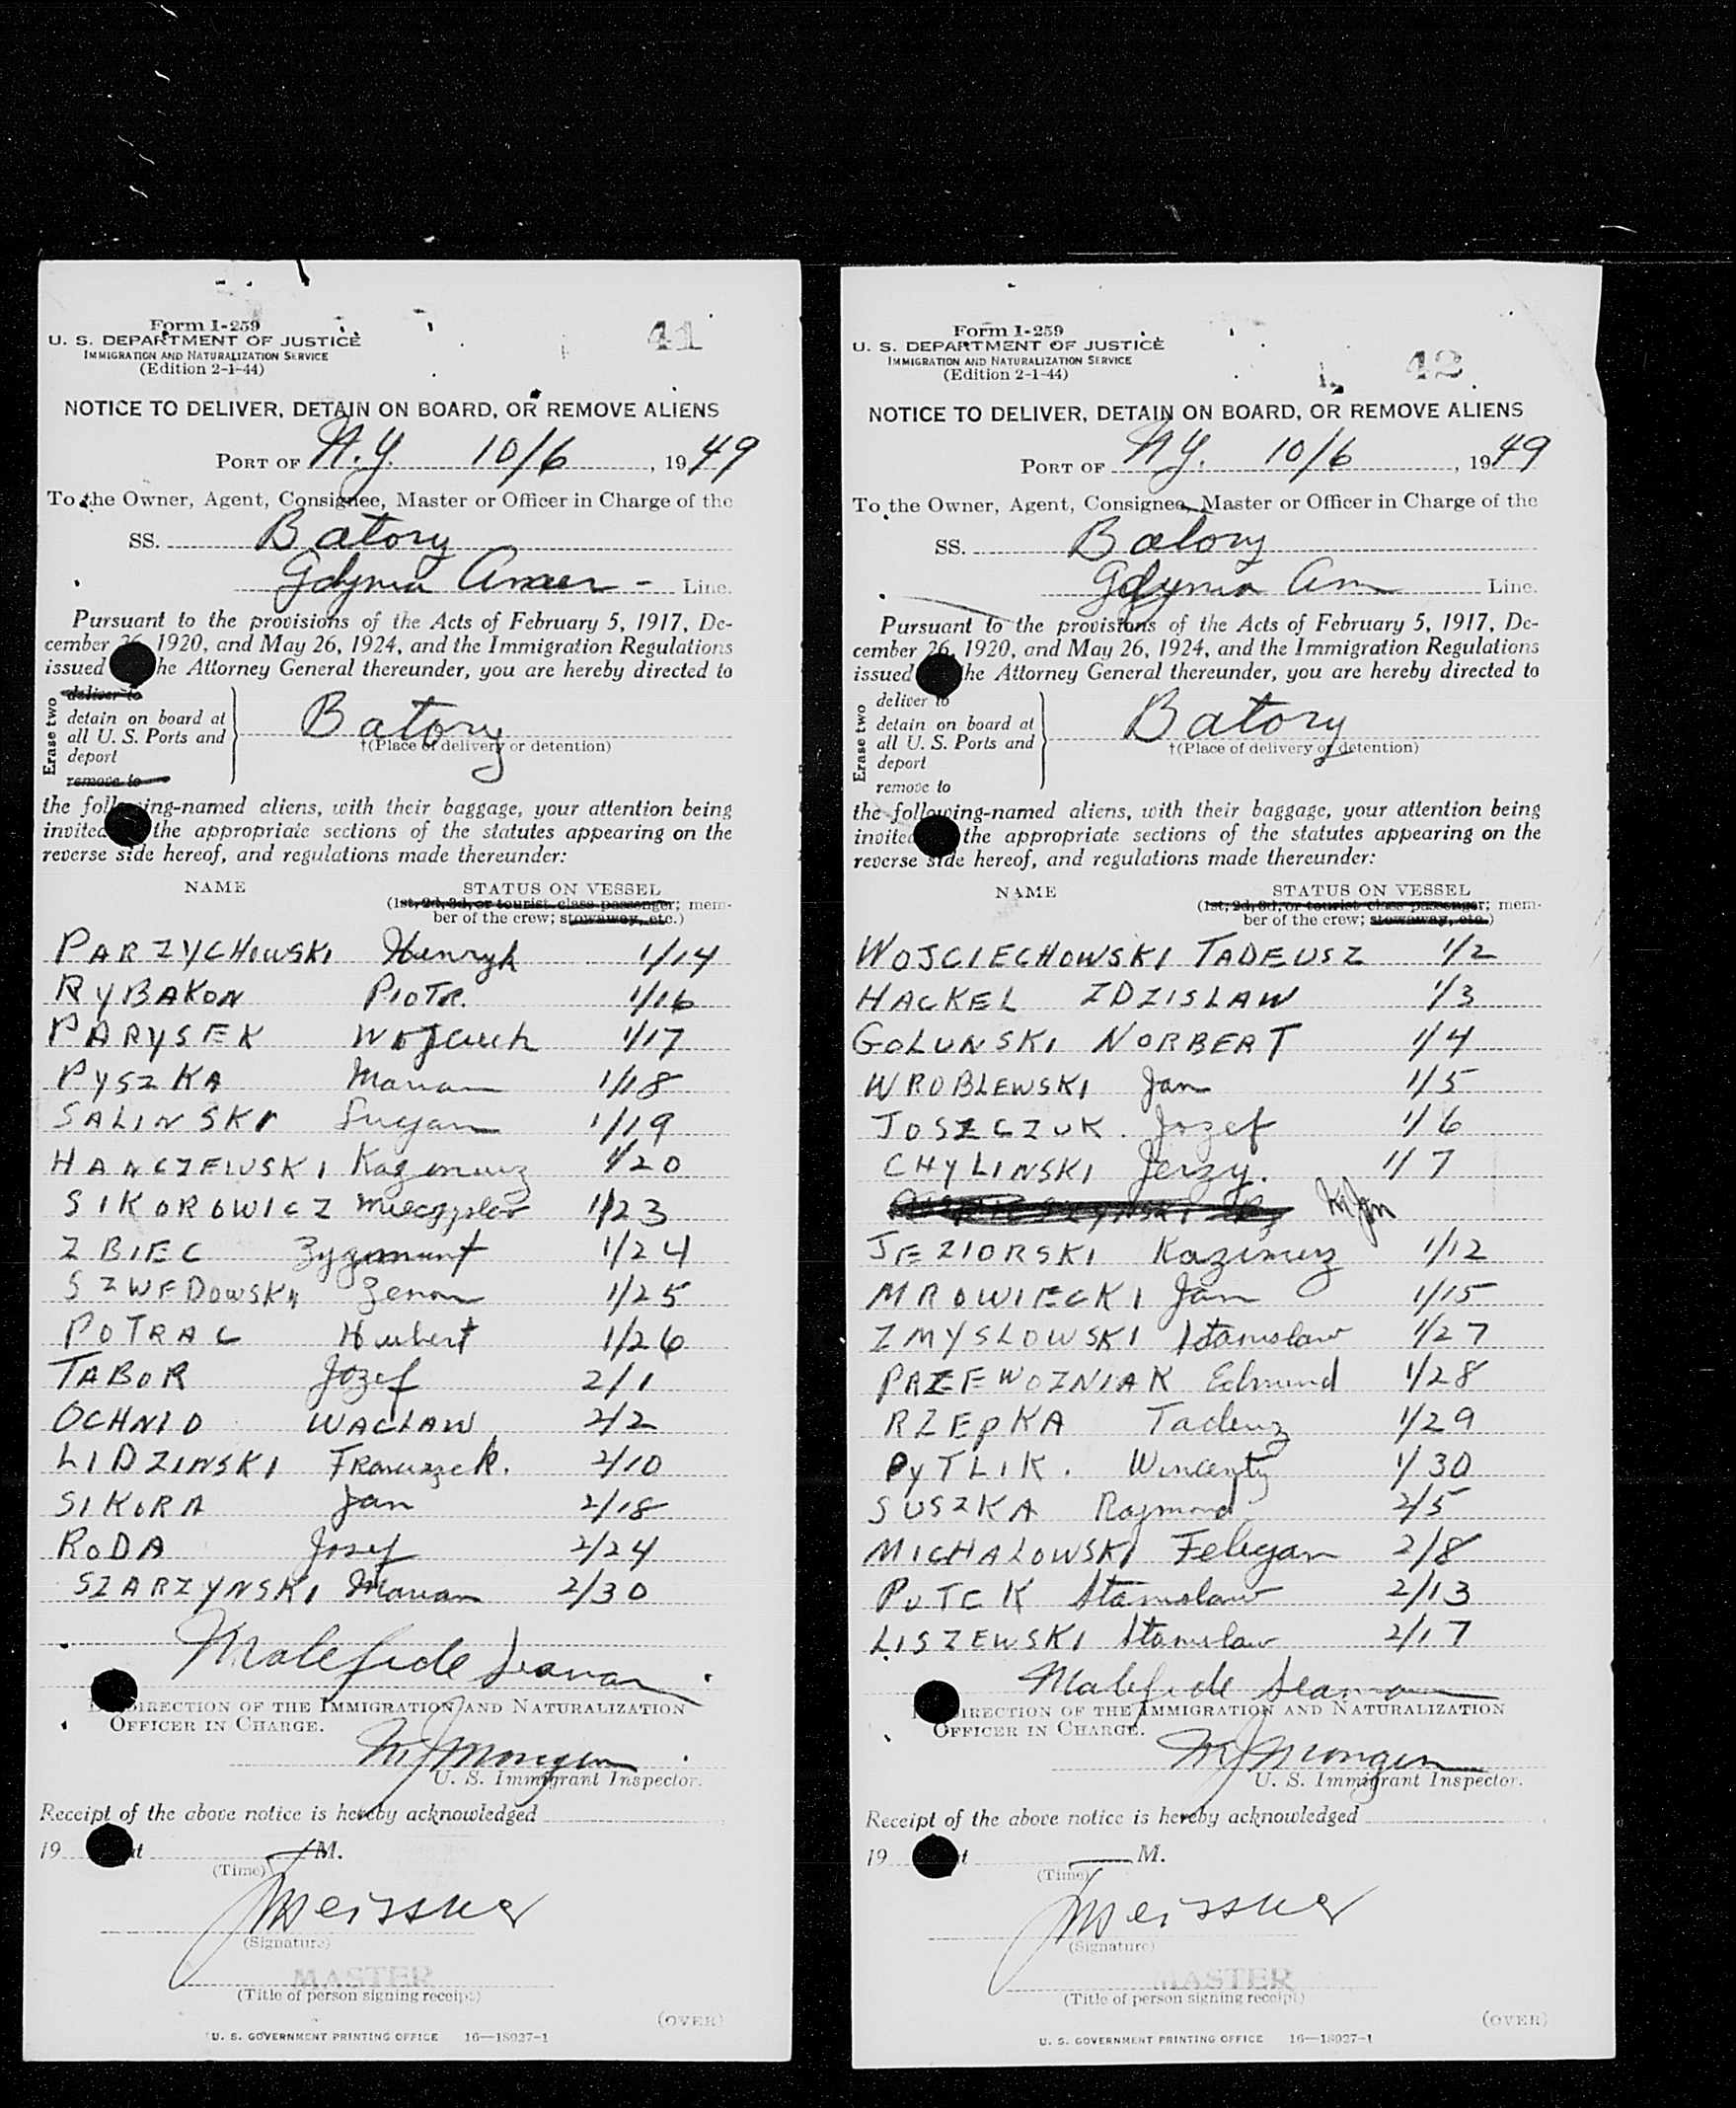 Form I-259
U. S. DEPARTMENT OF JUSTICE
IMMIGRATION AND NATURALIZATION SERVICE
(Edition 2-1-44)
41
NOTICE TO DELIVER, DETAIN ON BOARD, OR REMOVE ALIENS
PORT OF N.Y. 10/6, 1949
To the Owner, Agent, Consignee, Master or Officer in Charge of the
SS. Batory
Gdynia Amer- Line.
Pursuant to the provisions of the Acts of February 5, 1917, De-
cember 26, 1920, and May 26, 1924, and the Immigration Regulations
issued he Attorney General thereunder, you are hereby directed to
Erase two
deliver to
detain on board at
all U. S. Ports and
deport
remove to
Batory
†(Place of delivery or detention)
the following-named aliens, with their baggage, your attention being
invited the appropriate sections of the statutes appearing on the
reverse side hereof, and regulations made thereunder:
NAME STATUS ON VESSEL
(1st, 2d, 3d, or tourist class passenger; mem-
ber of the crew; stowaway, etc.)
PARZYCHOWSKI Henryk 1/14
RYBAKON PIOTR. 1/16
PARYSEK Wojciech 1/17
PYSZKA Marian 1/18
SALINSKI 1/19
HANCZEWSKI Kazimierz 1/20
SIKOROWICZ Mieczyslav 1/23
ZBIEC Zygmunt 1/24
SZWEDOWSKI Zenon 1/25
POTRAC Hubert 1/26
TABOR Jozef 2/1
OCHNIO WACLAW 2/2
LIDZINSKI Franciszek. 2/10
SIKORA Jan 2/18
RODA Josef 2/24
SZARZYNSKI Marian 2/30
Malefide Seaman
DIRECTION OF THE IMMIGRATION AND NATURALIZATION
OFFICER IN CHARGE.
U. S. Immigrant Inspector.
Receipt of the above notice is hereby acknowledged
19 at M.
(Time)
Meissner
(Signature)
MASTER
(Title of person signing receipt)
(OVER)
U. S. GOVERNMENT PRINTING OFFICE 16—18027-1
Form I-259
U. S. DEPARTMENT OF JUSTICE
IMMIGRATION AND NATURALIZATION SERVICE
(Edition 2-1-44)
42
NOTICE TO DELIVER, DETAIN ON BOARD, OR REMOVE ALIENS
PORT OF NY. 10/6, 1949
To the Owner, Agent, Consignee, Master or Officer in Charge of the
SS. Batory
Gdynia Am Line.
Pursuant to the provisions of the Acts of February 5, 1917, De-
cember 26, 1920, and May 26, 1924, and the Immigration Regulations
issued he Attorney General thereunder, you are hereby directed to
Erase two
deliver to
detain on board at
all U. S. Ports and
deport
remove to
Batory
†(Place of delivery or detention)
the following-named aliens, with their baggage, your attention being
invited the appropriate sections of the statutes appearing on the
reverse side hereof, and regulations made thereunder:
NAME STATUS ON VESSEL
(1st, 2d, 3d, or tourist class passenger; mem-
ber of the crew; stowaway, etc.)
WOJCIECHOWSKI TADEUSZ 1/2
HACKEL ZDZISLAW 1/3
GOLUNSKI NORBERT 1/4
WROBLEWSKI Jan 1/5
JOSZCZUK. Jozef 1/6
CHYLINSKI Jerzy. 1/7
JEZIORSKI Kazimierz 1/12
MROWIECKI Jan 1/15
ZMYSLOWSKI Stanislaw 1/27
PRZEWOZNIAK Edmund 1/28
RZEPKA Tadeusz 1/29
PYTLIK. Wincenty 1/30
SUSZKA Rajmond 2/5
MICHALOWSKI Felicjan 2/8
PUTEK Stanislaw 2/13
LISZEWSKI Stanislaw 2/17
Malefide Seaman
DIRECTION OF THE IMMIGRATION AND NATURALIZATION
OFFICER IN CHARGE.
U. S. Immigrant Inspector.
Receipt of the above notice is hereby acknowledged
19 at M.
(Time)
Meissner
(Signature)
MASTER
(Title of person signing receipt)
(OVER)
U. S. GOVERNMENT PRINTING OFFICE 16—18027-1